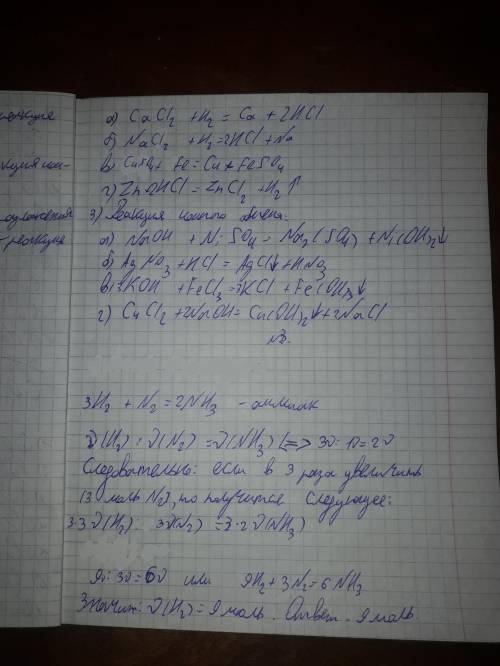 а) CaCl₂ + H₂ = Ca + 2HCl
б) NaCl₂ + H₂ = 2HCl + Na
в) CuSO₄ + Fe = Cu + FeSO₄
г) Zn + 2HCl = ZnCl₂ + H₂↑
3) Реакция ионного обмена:
реакция
а) NaOH + NiSO₄ = Na₂(SO₄) + Ni(OH)₂↓
б) AgNO₃ + HCl = AgCl↓ + HNO₃
в) 3KOH + FeCl₃ = 3KCl + Fe(OH)₃↓
г) CuCl₂ + 2NaOH = Cu(OH)₂↓ + 2NaCl
№3.
3H₂ + N₂ = 2NH₃ - аммиак
ν(H₂) : ν(N₂) = ν(NH₃) (=> 3ν : 1ν = 2ν
Следовательно: если в 3 раза увеличить
(3 моль N₂), то получится следующее:
3·3ν(H₂) 3ν(N₂) = 3·2ν(NH₃)
9ν : 3ν = 6ν или 9H₂ + 3N₂ = 6NH₃
Значит: ν(H₂) = 9 моль. Ответ - 9 моль